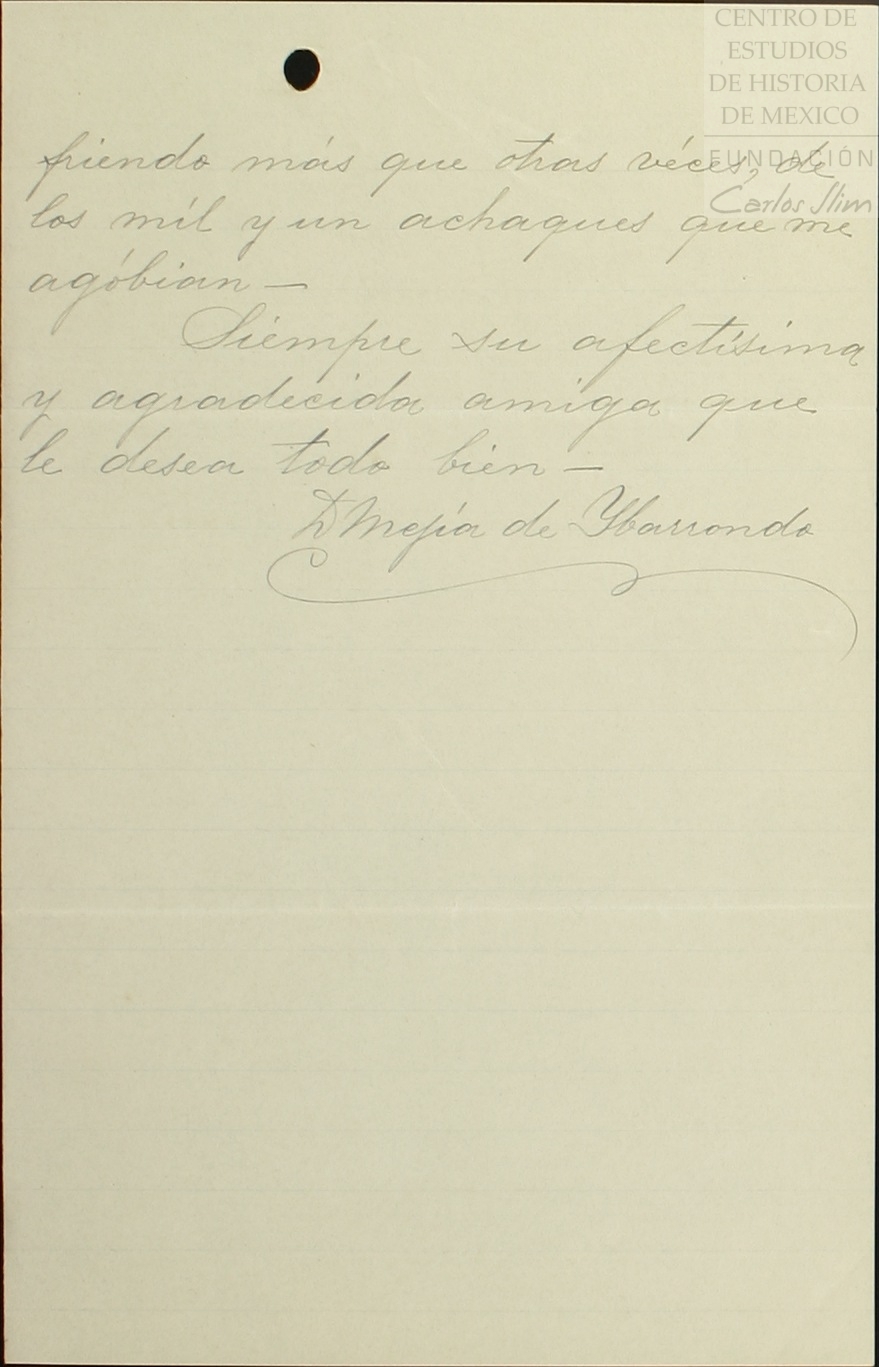 CENTRO DE
ESTUDIOS
DE HISTORIA
DE MEXICO
FUNDACIÓN
Carlos Slim
friendo más que otras véces, de
los mil y un achaques que me
agóbian —
Siempre su afectísima
y agradecida amiga que
le desea todo bien —
D Mejía de Ybarrondo